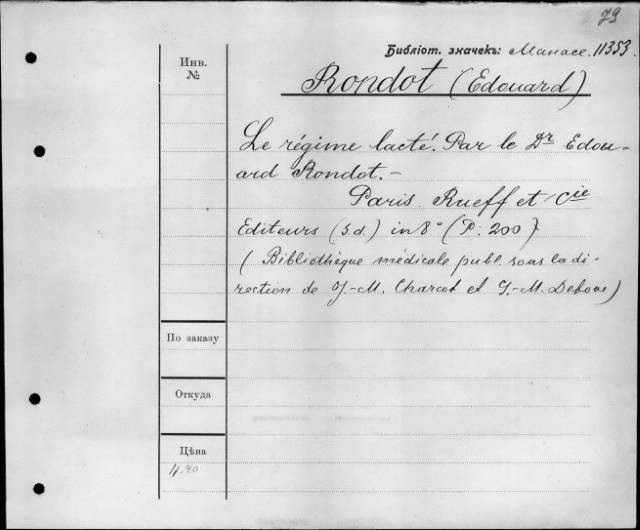 79
Библіот. значекъ: Манасс. 11353.
Инв.
№
Rondot (Edouard)
Le régime lacté. Par le Dr Edou-
ard Rondot. —
Paris Rueff et Cie
Editeurs (S.d.) in 8° (P: 200)
(Bibliothèque médicale publ. sous la di-
rection de J.-M. Charcot et G.-M. Debove)
По заказу
Откуда
Цѣна
4.40